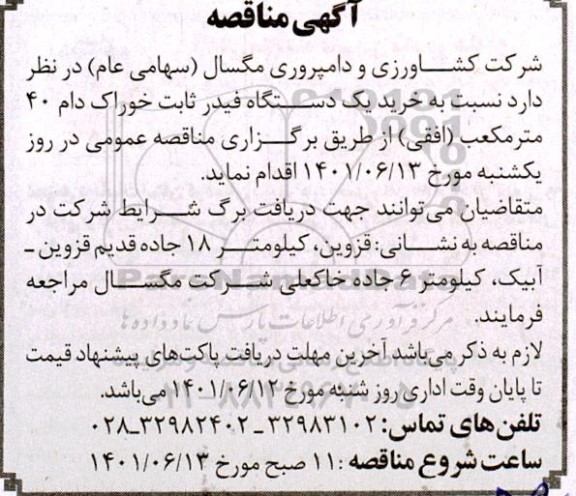 آگهی مناقصه
شرکت کشاورزی و دامپروری مگسال (سهامی عام) در نظر
دارد نسبت به خرید یک دستگاه فیدر ثابت خوراک دام ۴۰
مترمکعب (افقی) از طریق برگزاری مناقصه عمومی در روز
یکشنبه مورخ ۱۴۰۱/۰۶/۱۳ اقدام نماید.
متقاضیان می‌توانند جهت دریافت برگ شرایط شرکت در
مناقصه به نشانی: قزوین، کیلومتر ۱۸ جاده قدیم قزوین ـ
آبیک، کیلومتر ۶ جاده خاکعلی شرکت مگسال مراجعه
فرمایند.
لازم به ذکر می‌باشد آخرین مهلت دریافت پاکت‌های پیشنهاد قیمت
تا پایان وقت اداری روز شنبه مورخ ۱۴۰۱/۰۶/۱۲ می‌باشد.
تلفن های تماس: ۳۲۹۸۳۱۰۲ ـ ۳۲۹۸۲۴۰۲ـ۰۲۸
ساعت شروع مناقصه : ۱۱ صبح مورخ ۱۴۰۱/۰۶/۱۳
ParsNamadData